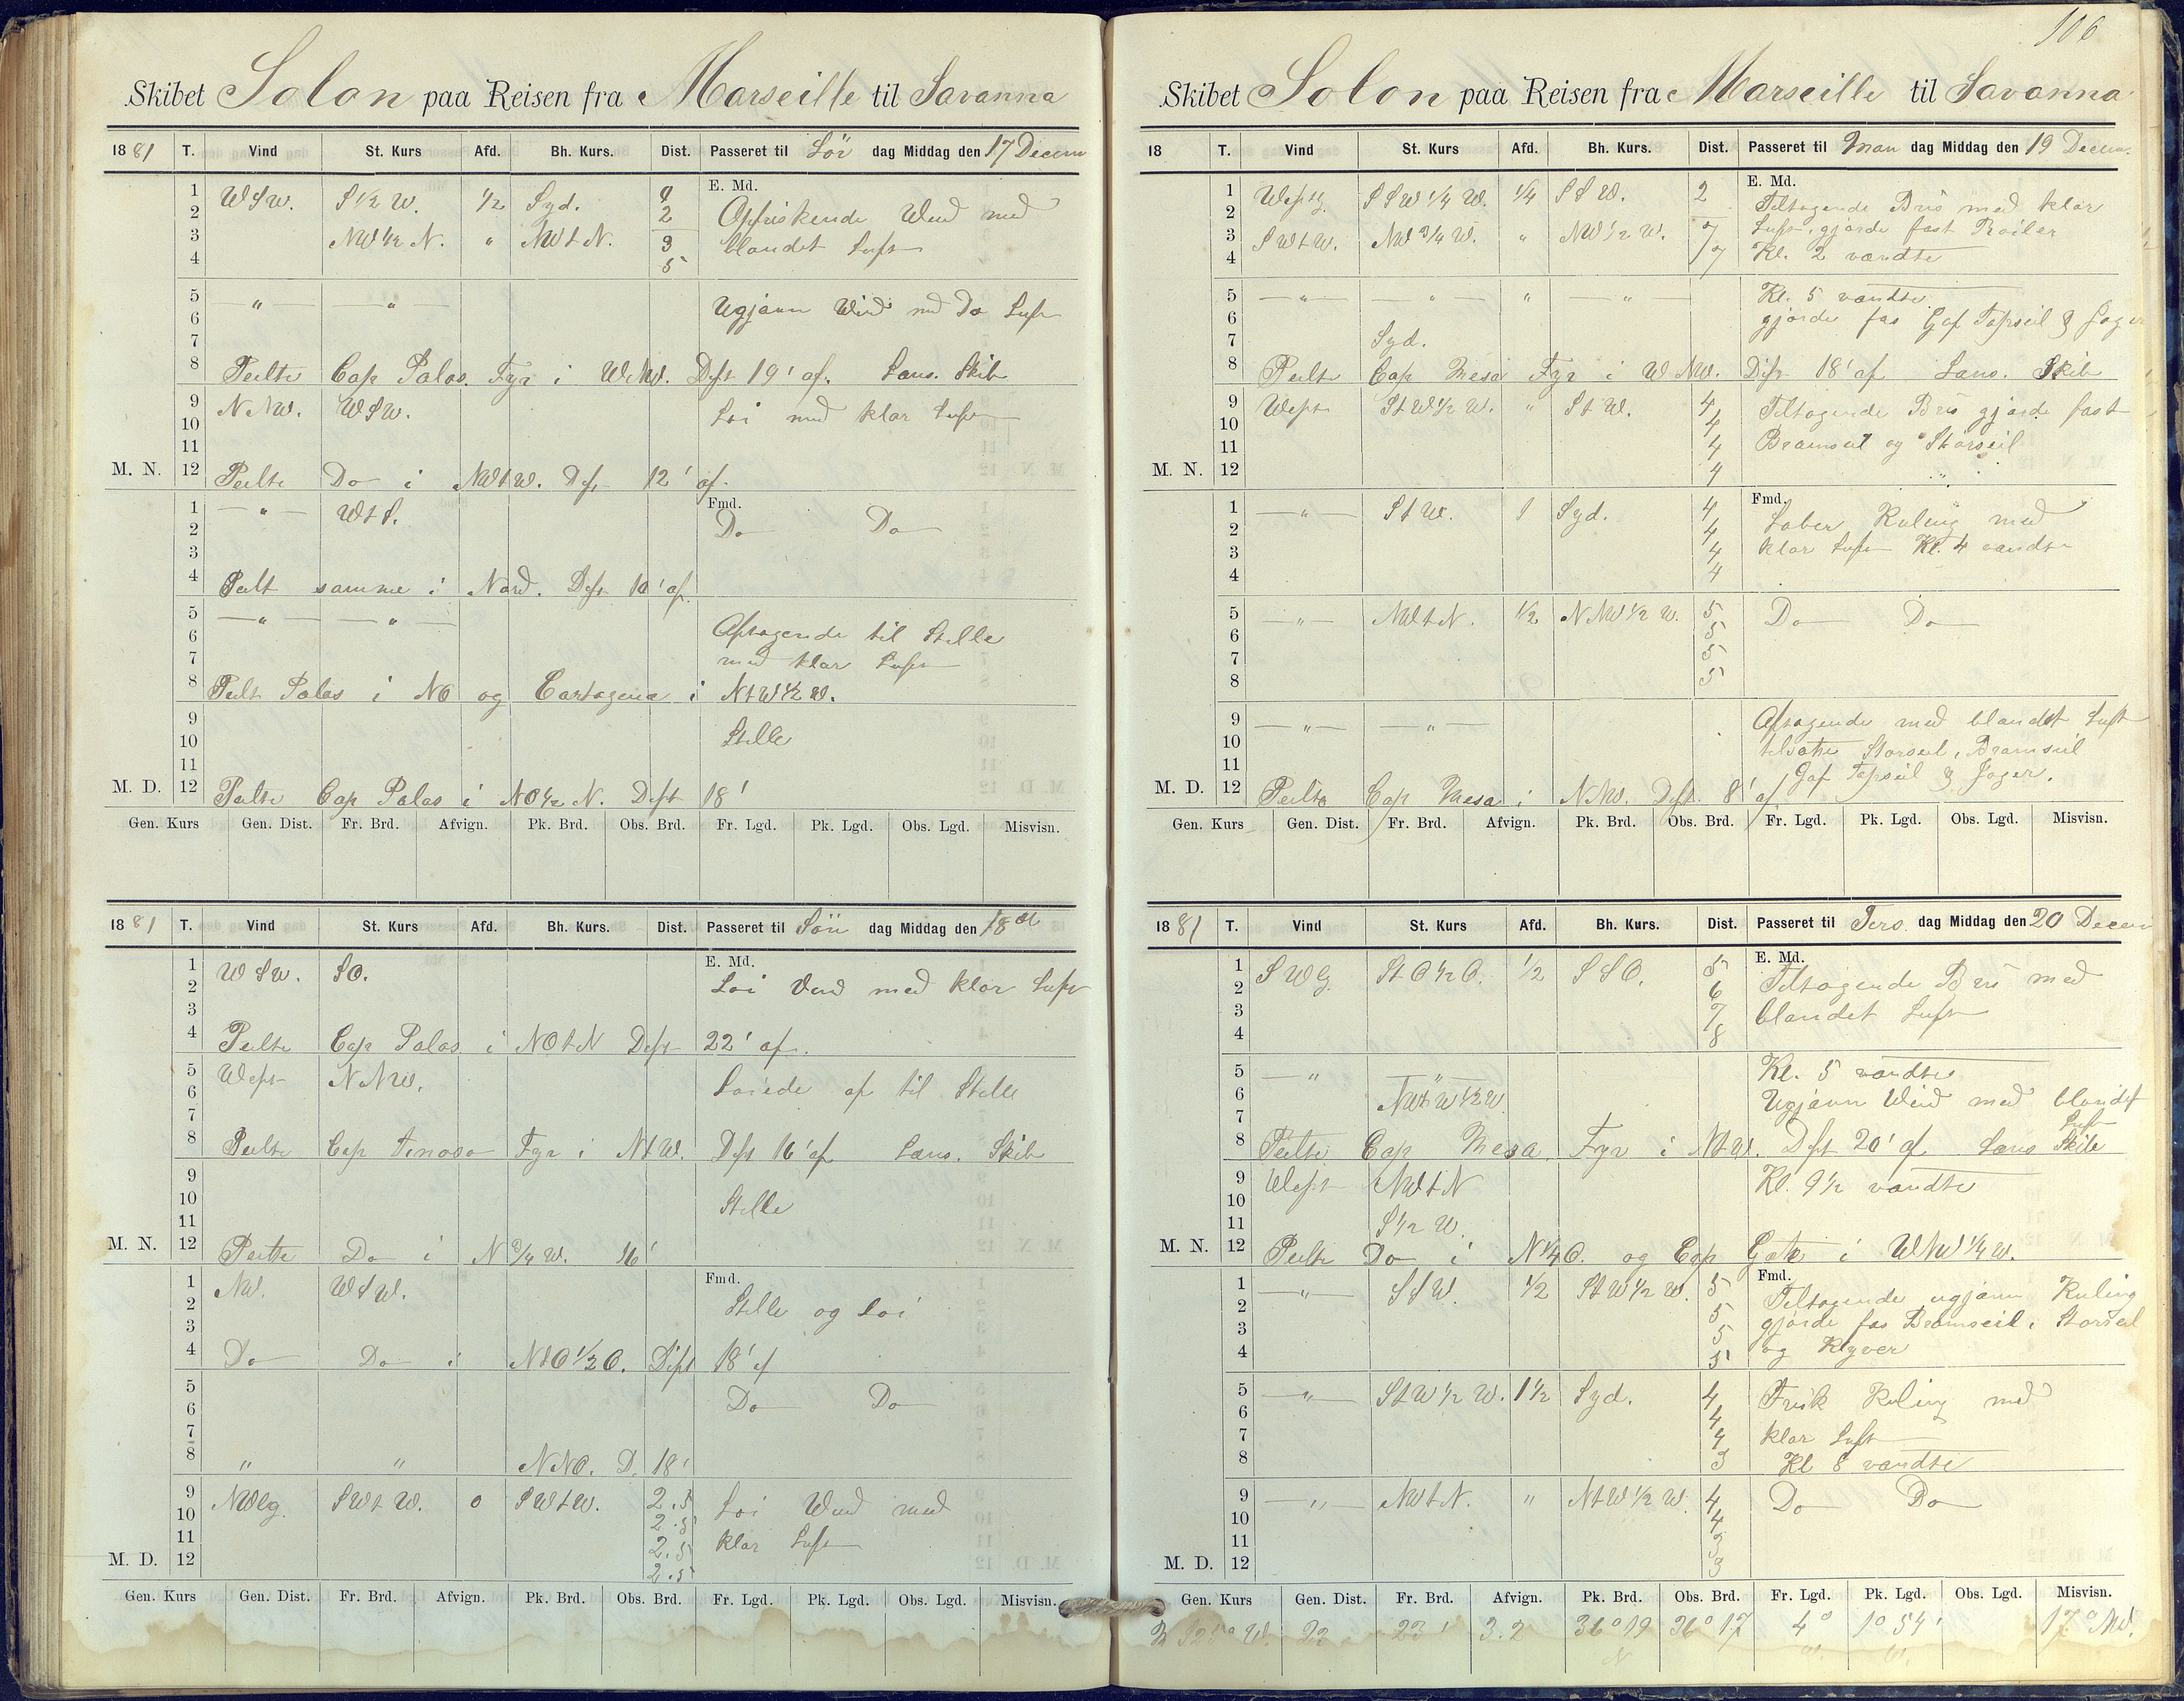 Skibet Solon paa Reisen fra Marseille til Savanna
1881 T. Vind St. Kurs Afd. Bh. Kurs. Dist. Passeret til Lör dag Middag den 17 Decem
E. Md.
1 WSW. S 1/2 W. 1/2 Syd.
2 2 Opfriskende Wind med
3 NW 1/2 N. " NWtN. 3 blandet Luft
4 5
5 — " — — " — Ugjävn Wind md Do Luft
6
7
8 Peilte Cap Palos. Fyr i WNW. Dist 19' af. Lans. Skib
9 NNW. WSW. Löi med klar Luft
10
11
M. N. 12 Peilte Do i NWtW. Dist 12' af.
Fmd.
1 — " — WtS. Do Do
2
3
4 Peilt samme i Nord. Dist 10' af.
5 — " — — " —
6 Aftagende til Stille
7 med klar Luft
8 Peilt Palos i NO og Cartagena i NtW 1/2 W.
9
10 Stille
11
M. D. 12 Peilte Cap Palos i NO 1/2 N. Dist 18'
Gen. Kurs Gen. Dist. Fr. Brd. Afvign. Pk. Brd. Obs. Brd. Fr. Lgd. Pk. Lgd. Obs. Lgd. Misvisn.
1881 T. Vind St. Kurs Afd. Bh. Kurs. Dist. Passeret til Sön dag Middag den 18 de
E. Md.
1 WSW. SO.
2 Löi Vind med klar Luft
3
4 Peilte Cap Palos i NOtN Dist 22' af.
5 West NNW. Löiede af til Stille
6
7
8 Peilte Cap Tinoso Fyr i NtW. Dist 16' af Lans. Skib
9
10 Stille
11
M. N. 12 Peilte Do i N 3/4 W. 16'
Fmd.
1 NW. WSW.
2 Stille og löi
3
4 Do Do i NtO 1/2 O. Dist 18' af
5
6 Do Do
7
8 " " NNO. D. 18'
9 NWlg. SWtW. 0 SWtW. 2.5 Löi Wind med
10 2.5
11 2.5 klar Luft
M. D. 12 2.5
Gen. Kurs Gen. Dist. Fr. Brd. Afvign. Pk. Brd. Obs. Brd. Fr. Lgd. Pk. Lgd. Obs. Lgd. Misvisn.
106
Skibet Solon paa Reisen fra Marseille til Savanna
18 T. Vind St. Kurs Afd. Bh. Kurs. Dist. Passeret til Man dag Middag den 19 Decem.
E. Md.
1 Westlg. SSW 1/4 W. 1/4 SSW. 2
2 Tiltagende Bris med klar
3 SWtW. NW 3/4 W. " NW 1/2 W. 7 Luft, gjorde fast Röiler
4 7 Kl. 2 vændte
5 — " — — " — " — " — Kl. 5 vændte
6 gjorde fas Gaf Topseil & Jager
7 Syd.
8 Peilte Cap Mesa Fyr i WNW. Dist 18' af Lans. Skib
9 West StW 1/2 W. " StW. 4 Tiltagende Bris gjorde fast
10 4
11 4 Bramseil og Storseil
M. N. 12 4
Fmd.
1 — " — StW. 1 Syd. 4
2 4 Laber Kuling med
3 4 klar Luft Kl. 4 vændte
4 4
5 — " — NWtN. 1/2 NNW 1/2 W. 5 Do Do
6 5
7 5
8 5
9 — " — — " — Aftagende med blandet Luft
10 tilsatte Storseil, Bramseil
11 Gaf Topseil & Jager.
M. D. 12 Peilte Cap Mesa i NNW. Dist. 8' af
Gen. Kurs Gen. Dist. Fr. Brd. Afvign. Pk. Brd. Obs. Brd. Fr. Lgd. Pk. Lgd. Obs. Lgd. Misvisn.
1881 T. Vind St. Kurs Afd. Bh. Kurs. Dist. Passeret til Tirs. dag Middag den 20 Decem
E. Md.
1 SWlg. StO 1/2 O. 1/2 SSO. 5 Tiltagende Bris med
2 6
3 7 blandet Luft
4 8
5 — " — — " — Kl. 5 vændte
6 NWtW 1/2 W Ugjävn Wind med blandet
7 Luft
8 Peilte Cap Mesa Fyr i NtW. Dist 20' af Lans Skib
9 West NWtN Kl. 9 1/2 vændte
10
11 S 1/2 W.
M. N. 12 Peilte Do i N 1/4 O. og Cap Gata i WNW 1/4 W.
Fmd.
1 — " — SSW. 1/2 StW 1/2 W. 5 Tiltagende ugjävn Kuling
2 5
3 5 gjorde fas Bramseil, Storseil
4 5 og Klyver
5 — " — StW 1/2 W. 1 1/2 Syd. 4 Frisk Kuling med
6 4
7 4 klar Luft
8 3 Kl 8 vændte
9 — " — NWtN. " NtW 1/2 W. 4 Do Do
10 4
11 3
M. D. 12 3
Gen. Kurs Gen. Dist. Fr. Brd. Afvign. Pk. Brd. Obs. Brd. Fr. Lgd. Pk. Lgd. Obs. Lgd. Misvisn.
22 23' 3.2 36° 19 36° 17 4° 1° 54' 17° NW.
N W. W.